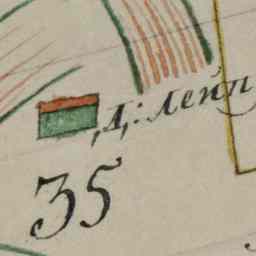 Д: Лейп
35